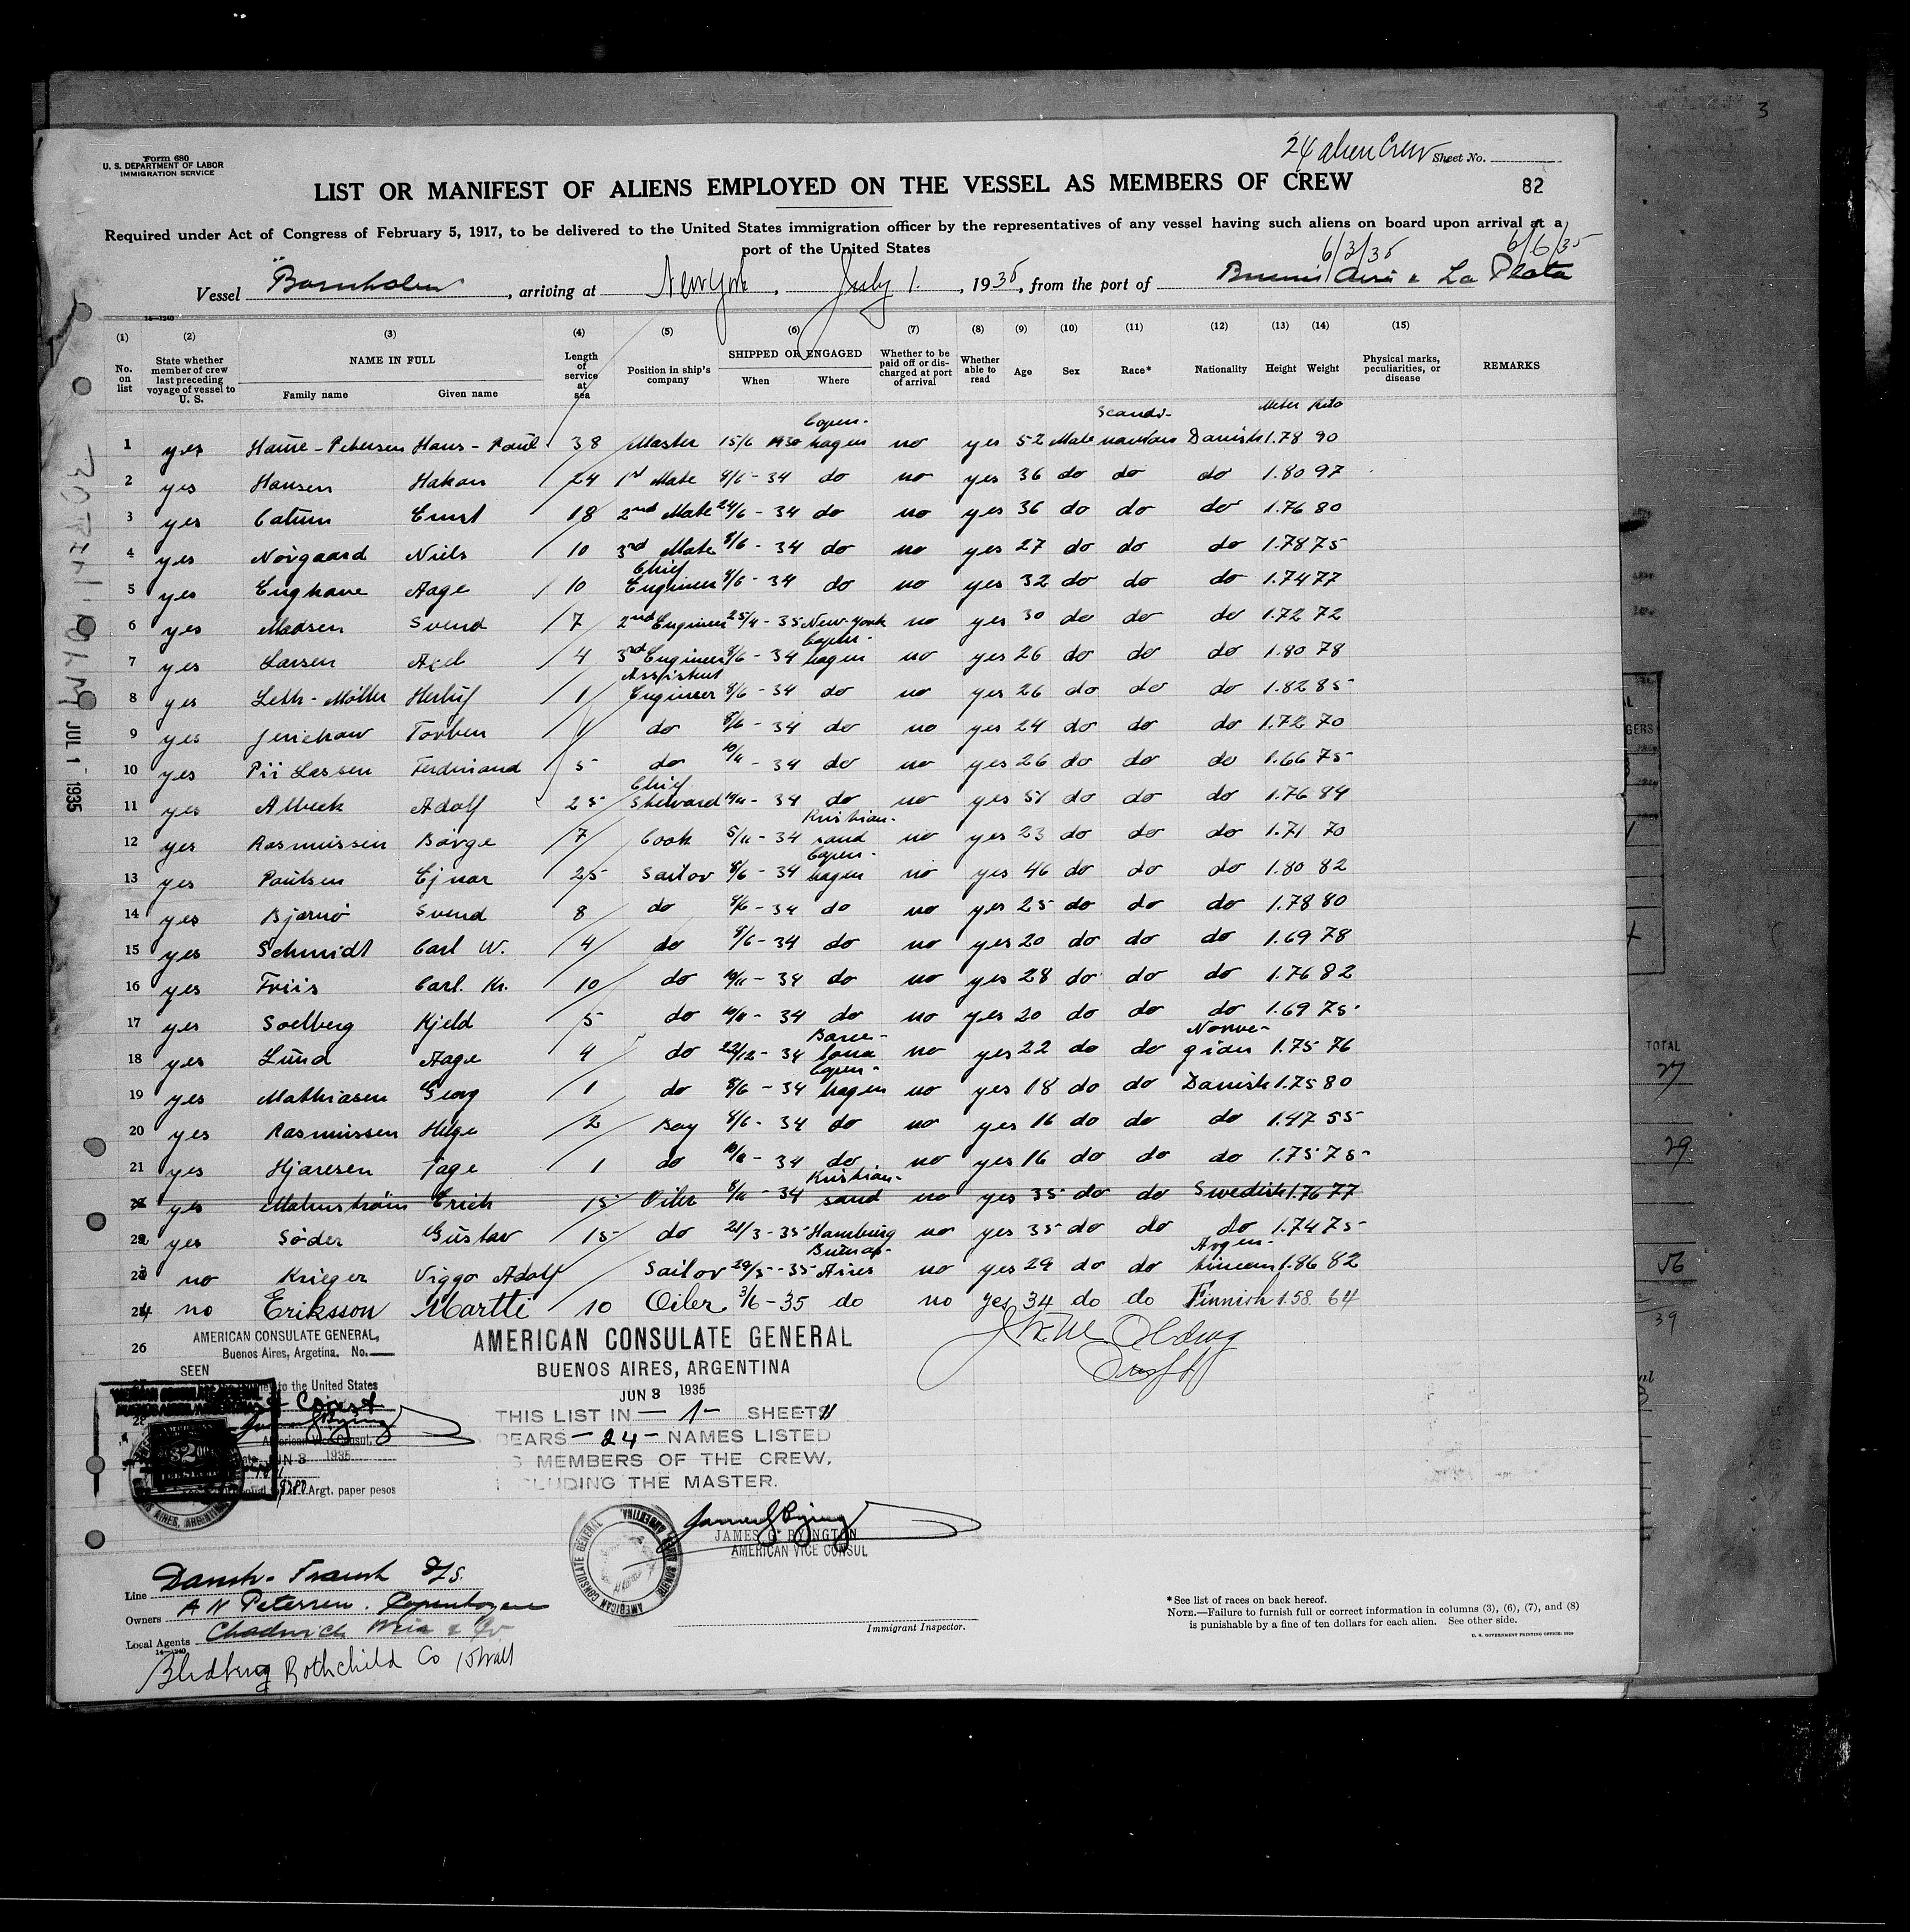 3
Form 680
U. S. DEPARTMENT OF LABOR
IMMIGRATION SERVICE
24 alien Crew Sheet No.
LIST OR MANIFEST OF ALIENS EMPLOYED ON THE VESSEL AS MEMBERS OF CREW
82
Required under Act of Congress of February 5, 1917, to be delivered to the United States immigration officer by the representatives of any vessel having such aliens on board upon arrival at a
port of the United States
6/3/35 6/6/35
Vessel Bornholm, arriving at New York, July 1, 1935, from the port of Buenos Aires & La Plata
14—1240
(1) (2) (3) (4) (5) (6) (7) (8) (9) (10) (11) (12) (13) (14) (15)
No. on list
State whether member of crew last preceding voyage of vessel to U. S.
NAME IN FULL
Family name Given name
Length of service at sea
Position in ship's company
SHIPPED OR ENGAGED
When Where
Whether to be paid off or discharged at port of arrival
Whether able to read
Age Sex Race* Nationality Height Weight
Physical marks, peculiarities, or disease
REMARKS
Meter Kilo
1 yes Haure-Petersen Hans-Paul 38 Master 15/6 1930 Copen-hagen no yes 52 Male Scandi-navian Danish 1.78 90
2 yes Hansen Hakan 24 1st Mate 8/6 - 34 do no yes 36 do do do 1.80 97
3 yes Catum Ernst 18 2nd Mate 24/6 - 34 do no yes 36 do do do 1.76 80
4 yes Norgaard Niels 10 3rd Mate 8/6 - 34 do no yes 27 do do do 1.78 75
5 yes Enghave Aage 10 Chief Engineer 8/6 - 34 do no yes 32 do do do 1.74 77
6 yes Madsen Svend 7 2nd Engineer 25/4 - 35 New-York no yes 30 do do do 1.72 72
7 yes Larsen Axel 4 3rd Engineer 8/6 - 34 Copen-hagen no yes 26 do do do 1.80 78
8 yes Leth-Möller Herluf 1 Assistent Engineer 8/6 - 34 do no yes 26 do do do 1.82 85
9 yes Jerichow Torben 1 do 8/6 - 34 do no yes 24 do do do 1.72 70
10 yes Pii Lassen Ferdinand 5 do 10/11 - 34 do no yes 26 do do do 1.66 75
11 yes Albeck Adolf 25 Chief Steward 10/11 - 34 do no yes 51 do do do 1.76 84
12 yes Rasmussen Börge 7 Cook 5/11 - 34 Kristian-sand no yes 23 do do do 1.71 70
13 yes Paulsen Ejnar 25 Sailor 8/6 - 34 Copen-hagen no yes 46 do do do 1.80 82
14 yes Bjarnö Svend 8 do 8/6 - 34 do no yes 25 do do do 1.78 80
15 yes Schmidt Carl W. 4 do 8/6 - 34 do no yes 20 do do do 1.69 78
16 yes Friis Carl. Kr. 10 do 10/11 - 34 do no yes 28 do do do 1.76 82
17 yes Soelberg Kjeld 5 do 10/11 - 34 do no yes 20 do do do 1.69 75
18 yes Lund Aage 4 do 22/12 - 34 Barce-lona no yes 22 do do Norve-gian 1.75 76
19 yes Mathiasen Georg 1 do 8/6 - 34 Copen-hagen no yes 18 do do Danish 1.75 80
20 yes Rasmussen Helge 2 Boy 8/6 - 34 do no yes 16 do do do 1.47 55
21 yes Hjaresen Tage 1 do 10/11 - 34 do no yes 16 do do do 1.75 75
22 yes Malmström Erich 15 Oiler 8/11 - 34 Kristian-sand no yes 35 do do Swedish 1.76 77
22 yes Söder Gustav 15 do 21/3 - 35 Hamburg no yes 35 do do do 1.74 75
23 no Krieger Viggo Adolf Sailor 29/5 - 35 Buenos-Aires no yes 29 do do Argen-tinean 1.86 82
24 no Eriksson Martti 10 Oiler 3/6 - 35 do no yes 34 do do Finnish 1.58 64
26
AMERICAN CONSULATE GENERAL,
Buenos Aires, Argetina. No.
SEEN
to the United States
American Vice Consul.
JUN 3 1935
Argt. paper pesos
AMERICAN CONSULATE GENERAL
BUENOS AIRES, ARGENTINA
JUN 3 1935
THIS LIST IN — 1 — SHEETS
BEARS — 24 — NAMES LISTED
AS MEMBERS OF THE CREW,
INCLUDING THE MASTER.
JAMES G. BYINGTON
AMERICAN VICE CONSUL
AMERICAN CONSULATE GENERAL BUENOS AIRES, ARGENTINA
JUL 1 1935
Line Dansk-Fransk D/S.
Owners A N Petersen. Copenhagen
Local Agents Chadwick Weir & Co
14—1240
Rothchild Co 15 Wall
Immigrant Inspector.
* See list of races on back hereof.
NOTE.—Failure to furnish full or correct information in columns (3), (6), (7), and (8)
is punishable by a fine of ten dollars for each alien. See other side.
U. S. GOVERNMENT PRINTING OFFICE: 1929
GERS
TOTAL
27
29
56
39